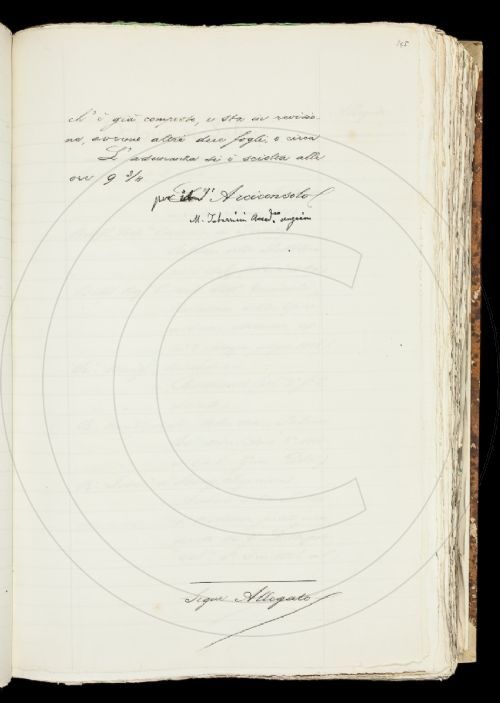 145
ch' è già composto, e sta in revisio-
ne, ovvero altri due fogli, o circa
L' adunanza si è sciolta alle
ore 9 3/4
per L' Arciconsolo
M. Tabarrini Accad.co anziano
Segue Allegato